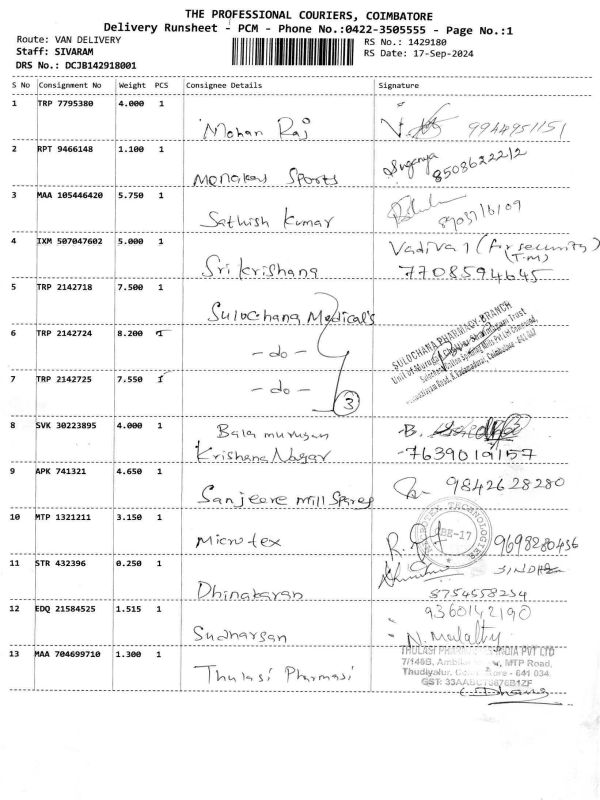 THE PROFESSIONAL COURIERS, COIMBATORE
Delivery Runsheet - PCM - Phone No.:0422-3505555 - Page No.:1
Route: VAN DELIVERY
RS No.: 1429180
Staff: SIVARAM
RS Date: 17-Sep-2024
DRS No.: DCJB142918001
S No Consignment No Weight PCS Consignee Details Signature
1 TRP 7795380 4.000 1
Mohan Raj 9944951151
2 RPT 9466148 1.100 1
Menakas Sports Suganya 8508622212
3 MAA 105446420 5.750 1
Sathish Kumar
4 IXM 507047602 5.000 1
Sri Krishana Vadiva1 (for security) (T.M) 7708594645
5 TRP 2142718 7.500 1
Sulochana Medical's
SULOCHANA PHARMACY-BRANCH
6 TRP 2142724 8.200 1
- do -
7 TRP 2142725 7.550 1
- do - 3
8 SVK 30223895 4.000 1
Bala murugan B.
Krishana Nagar 7639019157
9 APK 741321 4.650 1
Sanjeeve mill Spares 9842628280
10 MTP 1321211 3.150 1
Microtex R. BE-17 9698280436
11 STR 432396 0.250 1
Dhinakaran 8754558234
12 EDQ 21584525 1.515 1
9360142190
Sudharsan N. Malathy
13 MAA 704699710 1.300 1
THULASI PHARM INDIA PVT LTD
7/146B, MTP Road,
Thudiyalur, 641 034
Thulasi Pharmasi GST: